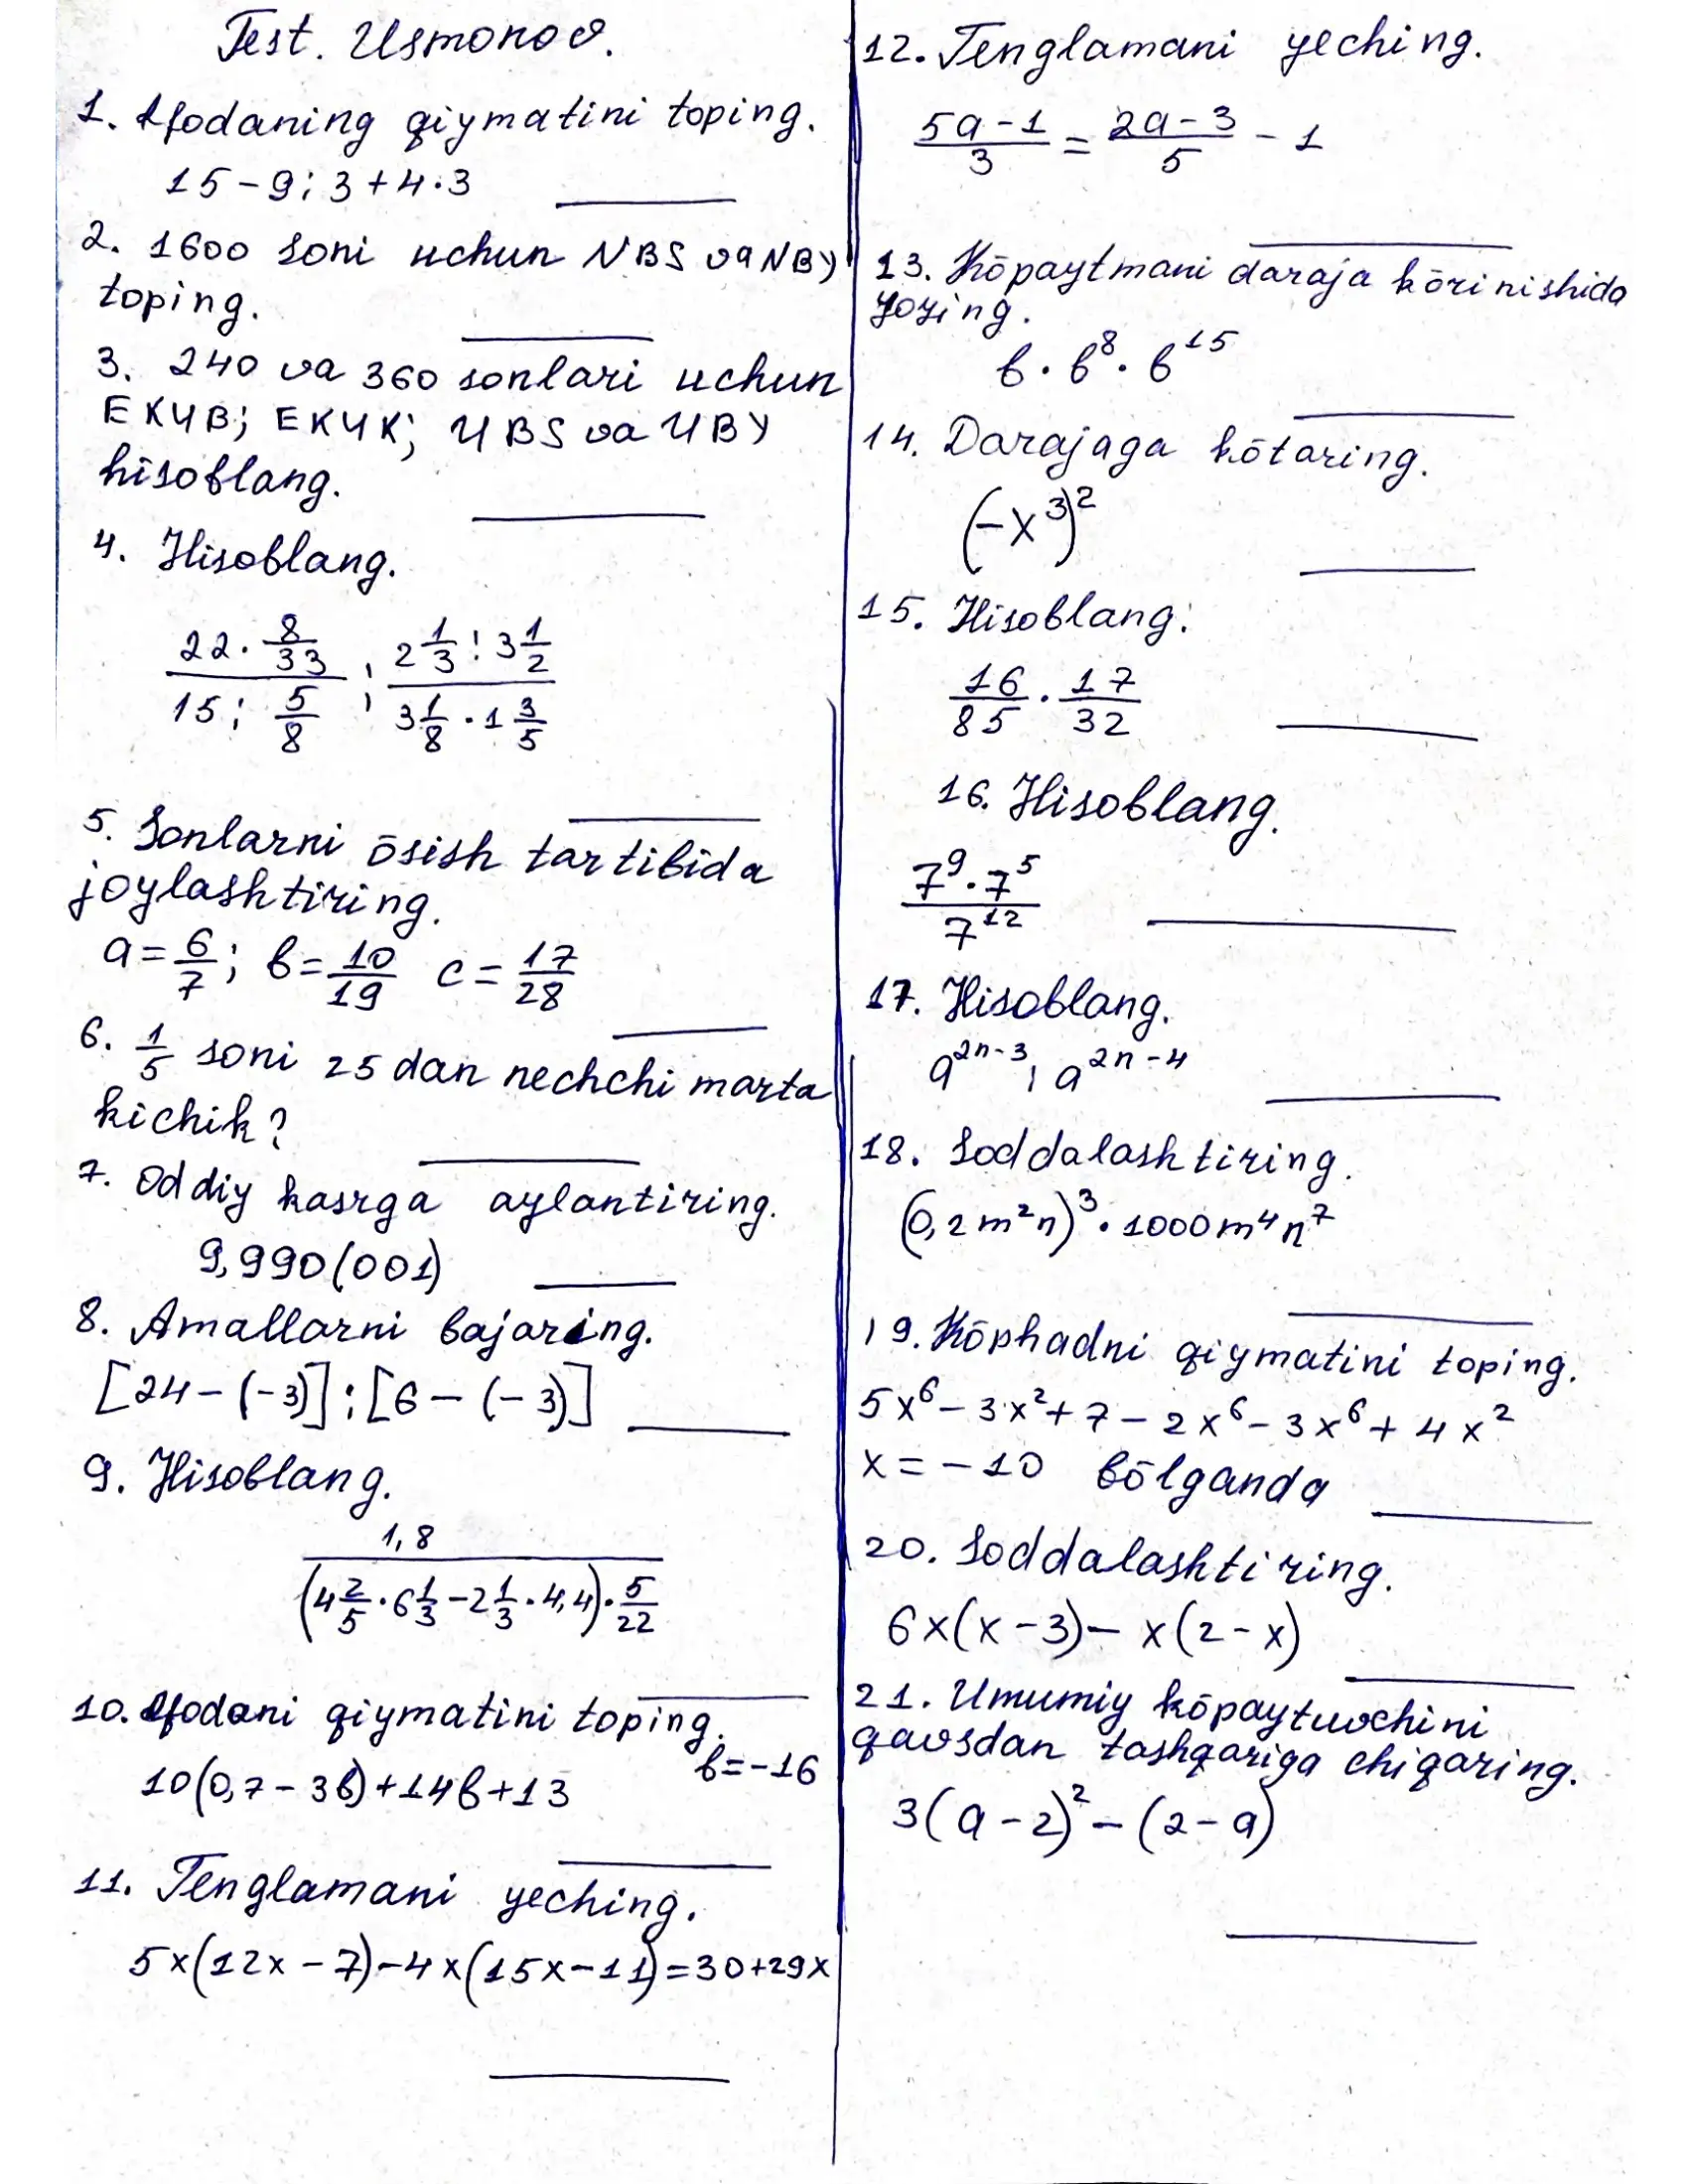 Test. Usmonov.
1. Ifodaning qiymatini toping.
15-9:3+4·3
2. 1600 soni uchun NBS va NBY
toping.
3. 240 va 360 sonlari uchun
EKUB; EKUK; UBS va UBY
hisoblang.
4. Hisoblang.
(22·8/33)/(15:5/8) ; (2 1/3 : 3 1/2)/(3 1/8 · 1 3/5)
5. Sonlarni ōsish tartibida
joylashtiring.
a=6/7; b=10/19 c=17/28
6. 1/5 soni 25 dan nechchi marta
kichik?
7. Oddiy kasrga aylantiring.
9,990(001)
8. Amallarni bajaring.
[24-(-3)]:[6-(-3)]
9. Hisoblang.
1,8/((4 2/5 · 6 1/3 - 2 1/3 · 4,4)·5/22)
10. Ifodani qiymatini toping.
b=-16
10(0,7-3b)+14b+13
11. Tenglamani yeching.
5x(12x-7)-4x(15x-11)=30+29x
12. Tenglamani yeching.
(5a-1)/3=(2a-3)/5-1
13. Kōpaytmani daraja kōrinishida
yozing.
b·b⁸·b¹⁵
14. Darajaga kōtaring.
(-x³)²
15. Hisoblang:
16/85·17/32
16. Hisoblang.
7⁹·7⁵/7¹²
17. Hisoblang.
a²ⁿ⁻³ : a²ⁿ⁻⁴
18. Soddalashtiring.
(0,2m²n)³·1000m⁴n⁷
19. Kōphadni qiymatini toping.
5x⁶-3x²+7-2x⁶-3x⁶+4x²
x=-10 bōlganda
20. Soddalashtiring.
6x(x-3)-x(2-x)
21. Umumiy kōpaytuvchini
qavsdan tashqariga chiqaring.
3(a-2)²-(2-a)